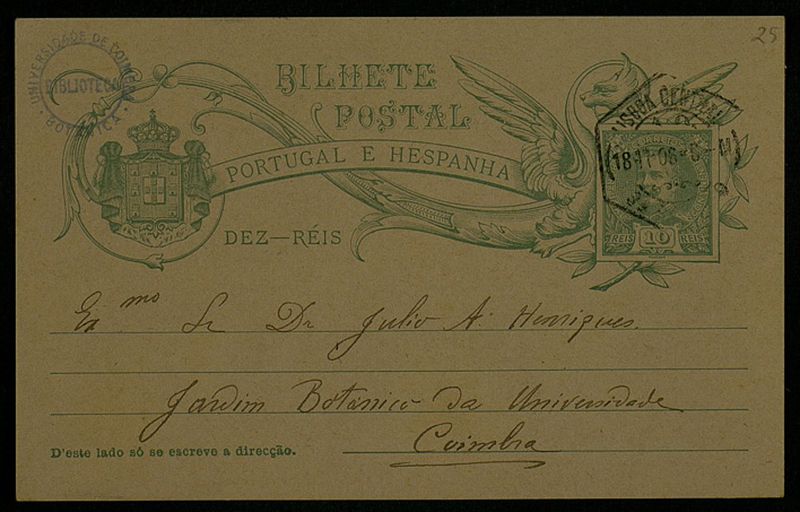 25
UNIVERSIDADE DE COIMBRA
BIBLIOTECA
BOTANICA
BILHETE
POSTAL
PORTUGAL E HESPANHA
DEZ—RÉIS
LISBOA CENTRAL
18-11-06
REIS 10 REIS
Ex.mo Sr Dr Julio A. Henriques.
Jardim Botanico da Universidade
Coimbra
D'este lado só se escreve a direcção.